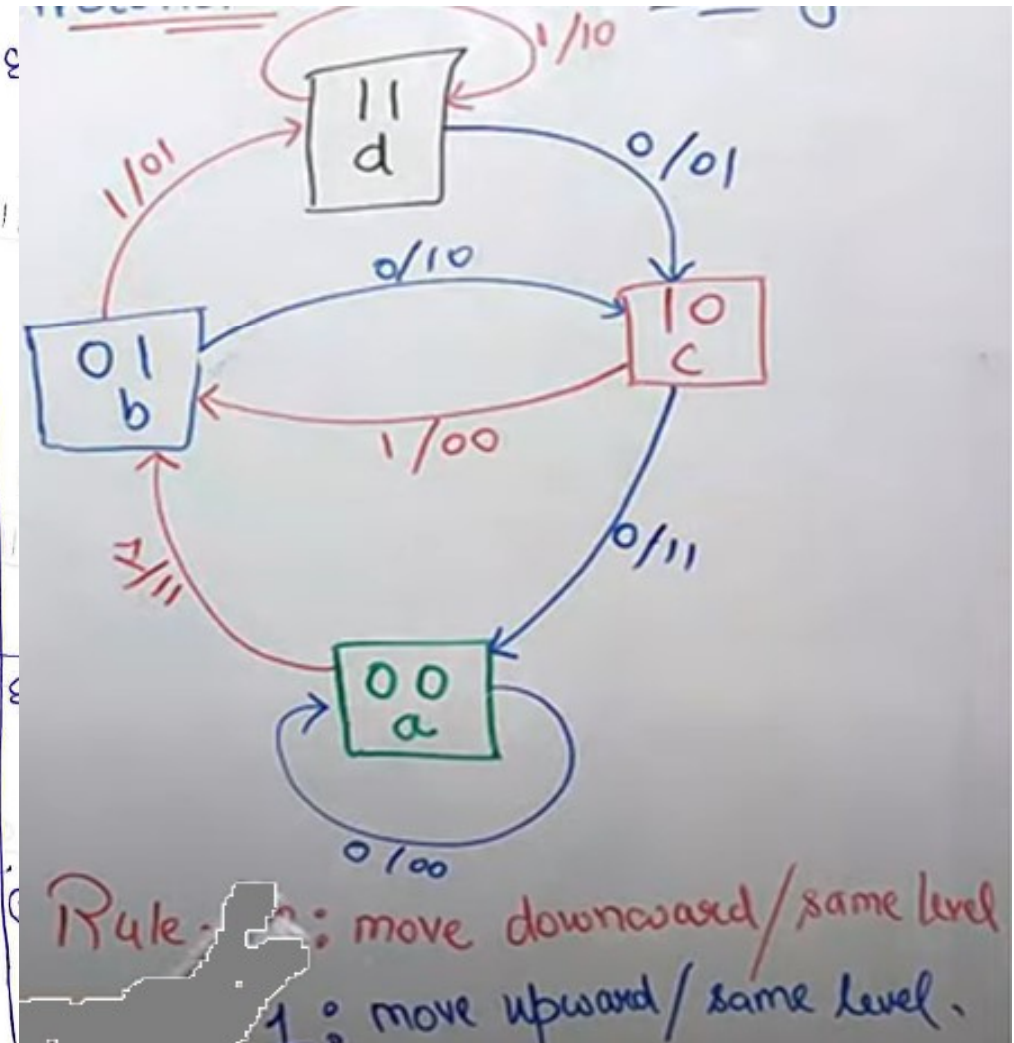 1/10
11
d
0/01
1/01
0/10
01
b
10
c
1/00
0/11
1/11
00
a
0/00
Rule : move downward/same level
1 : move upward/same level.